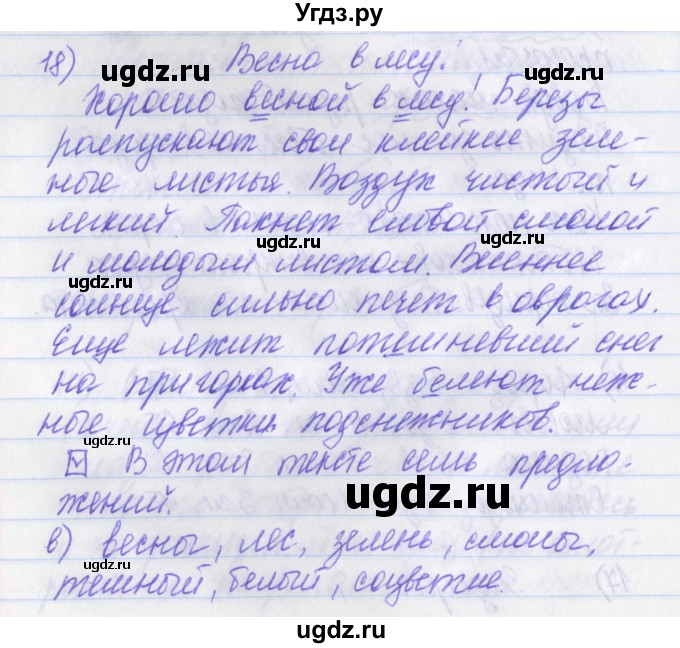 Угдз.ру
18) Весна в лесу!
Хорошо весной в лесу! Березы
распускают свои клейкие зеле-
ные листья. Воздух чистый и
легкий. Пахнет еловой смолой
и молодым листом. Весеннее
солнце сильно печет в оврагах.
Еще лежит потемневший снег
на пригорках. Уже белеют неж-
ные цветки подснежников.
В этом тексте семь предло-
жений.
в) весны, лес, зелень, смолы,
темный, белый, соцветие.
ugdz.ru
ugdz.ru
ugdz.ru
ugdz.ru
ugdz.ru
ugdz.ru
ugdz.ru
ugdz.ru
ugdz.ru
ugdz.ru
ugdz.ru